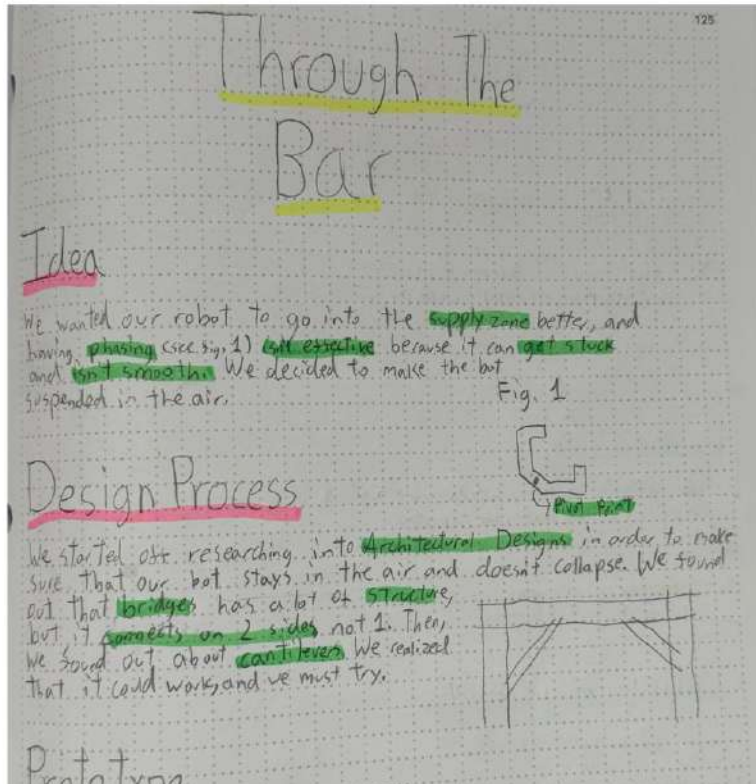 125
Through The
Bar
Idea
We wanted our robot to go into the supply zone better, and
having phasing (see fig. 1) isn't effective because it can get stuck
and isn't smooth. We decided to make the bot
suspended in the air.
Fig. 1
Pivot Point
Design Process
We started off researching into Architectural Designs in order to make
sure that our bot stays in the air and doesn't collapse. We found
out that bridges has a lot of structure,
but it connects on 2 sides not 1. Then,
we found out about cantilevers We realized
that it could work, and we must try.